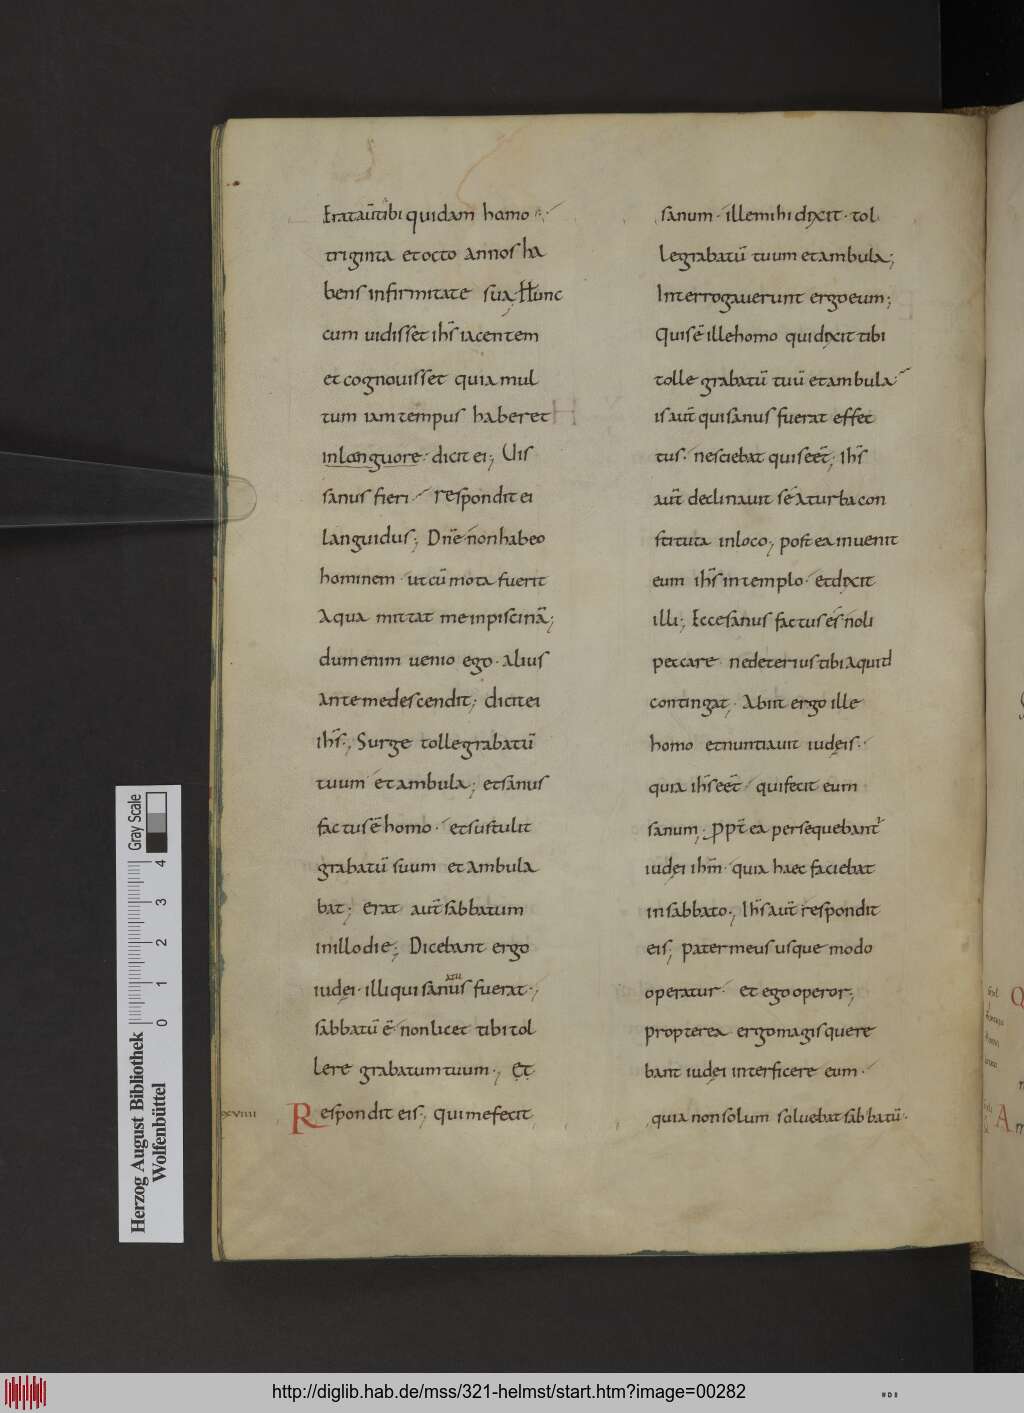 Erat aut̄ ibi quidam homo
triginta et octo annos ha
bens in firmitate sua; Hunc
cum uidisset ih̄s iacentem
et cognouisset quia mul
tum iam tempus haberet
in languore · dicit ei; Uis
sanus fieri · respondit ei
languidus; Dn̄e non habeo
hominem · ut cū mota fuerit
Aqua mittat me in piscinā;
dum enim uenio ego · alius
ante me descendit; dicit ei
ih̄s; Surge tolle grabatū
tuum et ambula; et sanus
factus ē homo · et sustulit
grabatū suum et ambula
bat; erat aut̄ sabbatum
in illo die; Dicebant ergo
iudęi · illi qui sanus fuerat ·
atu
sabbatū ē · non licet tibi tol
lere grabatum tuum ·; Et
xviiii Respondit eis; qui me fecit
sanum · ille mihi dixit · tol
le grabatū tuum et ambula;
Interrogauerunt ergo eum;
Quis ē ille homo qui dixit tibi
tolle grabatū tuū et ambula
is aut̄ qui sanus fuerat effec
tus · nesciebat quis eēt; ih̄s
aut̄ declinauit sé A turba con
stituta in loco; postea inuenit
eum ih̄s in templo · et dixit
illi; Ecce sanus factus es noli
peccare ne deterius tibi aquid
contingat; Abiit ergo ille
homo et nuntiauit iudęis ·
quia ih̄s eēt qui fecit eum
sanum; ꝓpt̄ ea persequebant
iudęi ih̄m · quia haec faciebat
in sabbato; Ih̄s aut̄ respondit
eis; pater meus usque modo
operatur · et ego operor;
propterea ergo magis quere
bant iudęi interficere eum ·
quia non solum soluebat sabbatū ·
Herzog August Bibliothek
Wolfenbüttel
0 1 2 3 4
Gray Scale
http://diglib.hab.de/mss/321-helmst/start.htm?image=00282